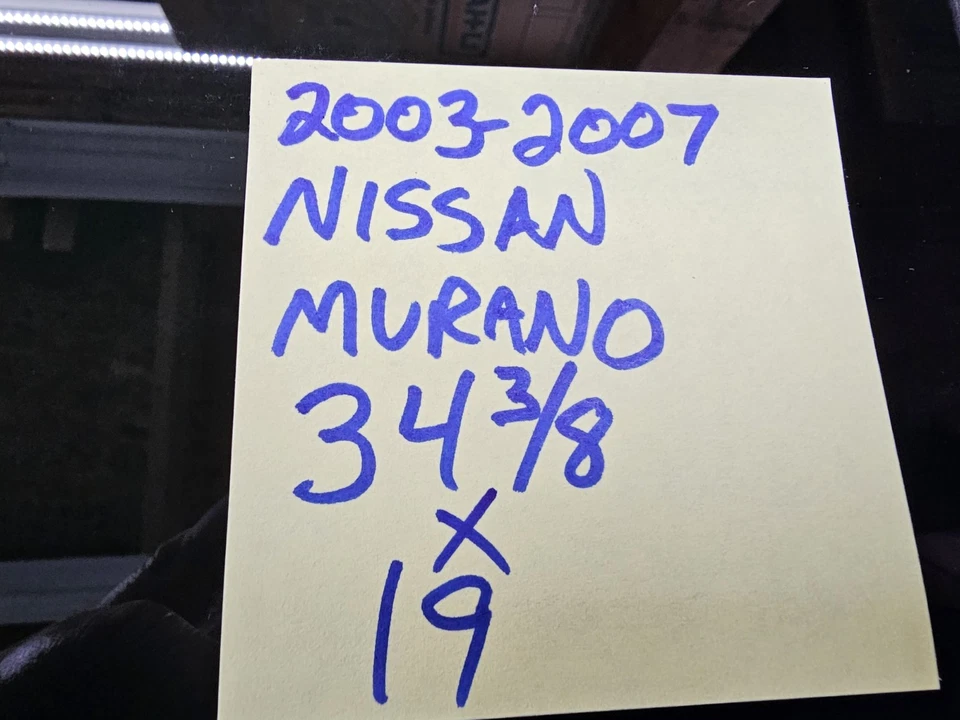 2003-2007
NISSAN
MURANO
34 3/8
X
19